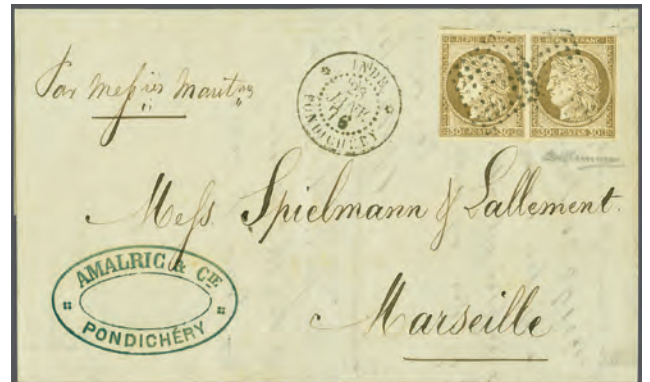 Par Messries Marit^mes
INDE
28
JANV.
76
PONDICHÉRY
REPUB. FRANC.
30 C POSTES 30 C
REPUB. FRANC.
30 C POSTES 30 C
Mess. Spielmann & Lallement.
Marseille
AMALRIC & CIE
PONDICHÉRY